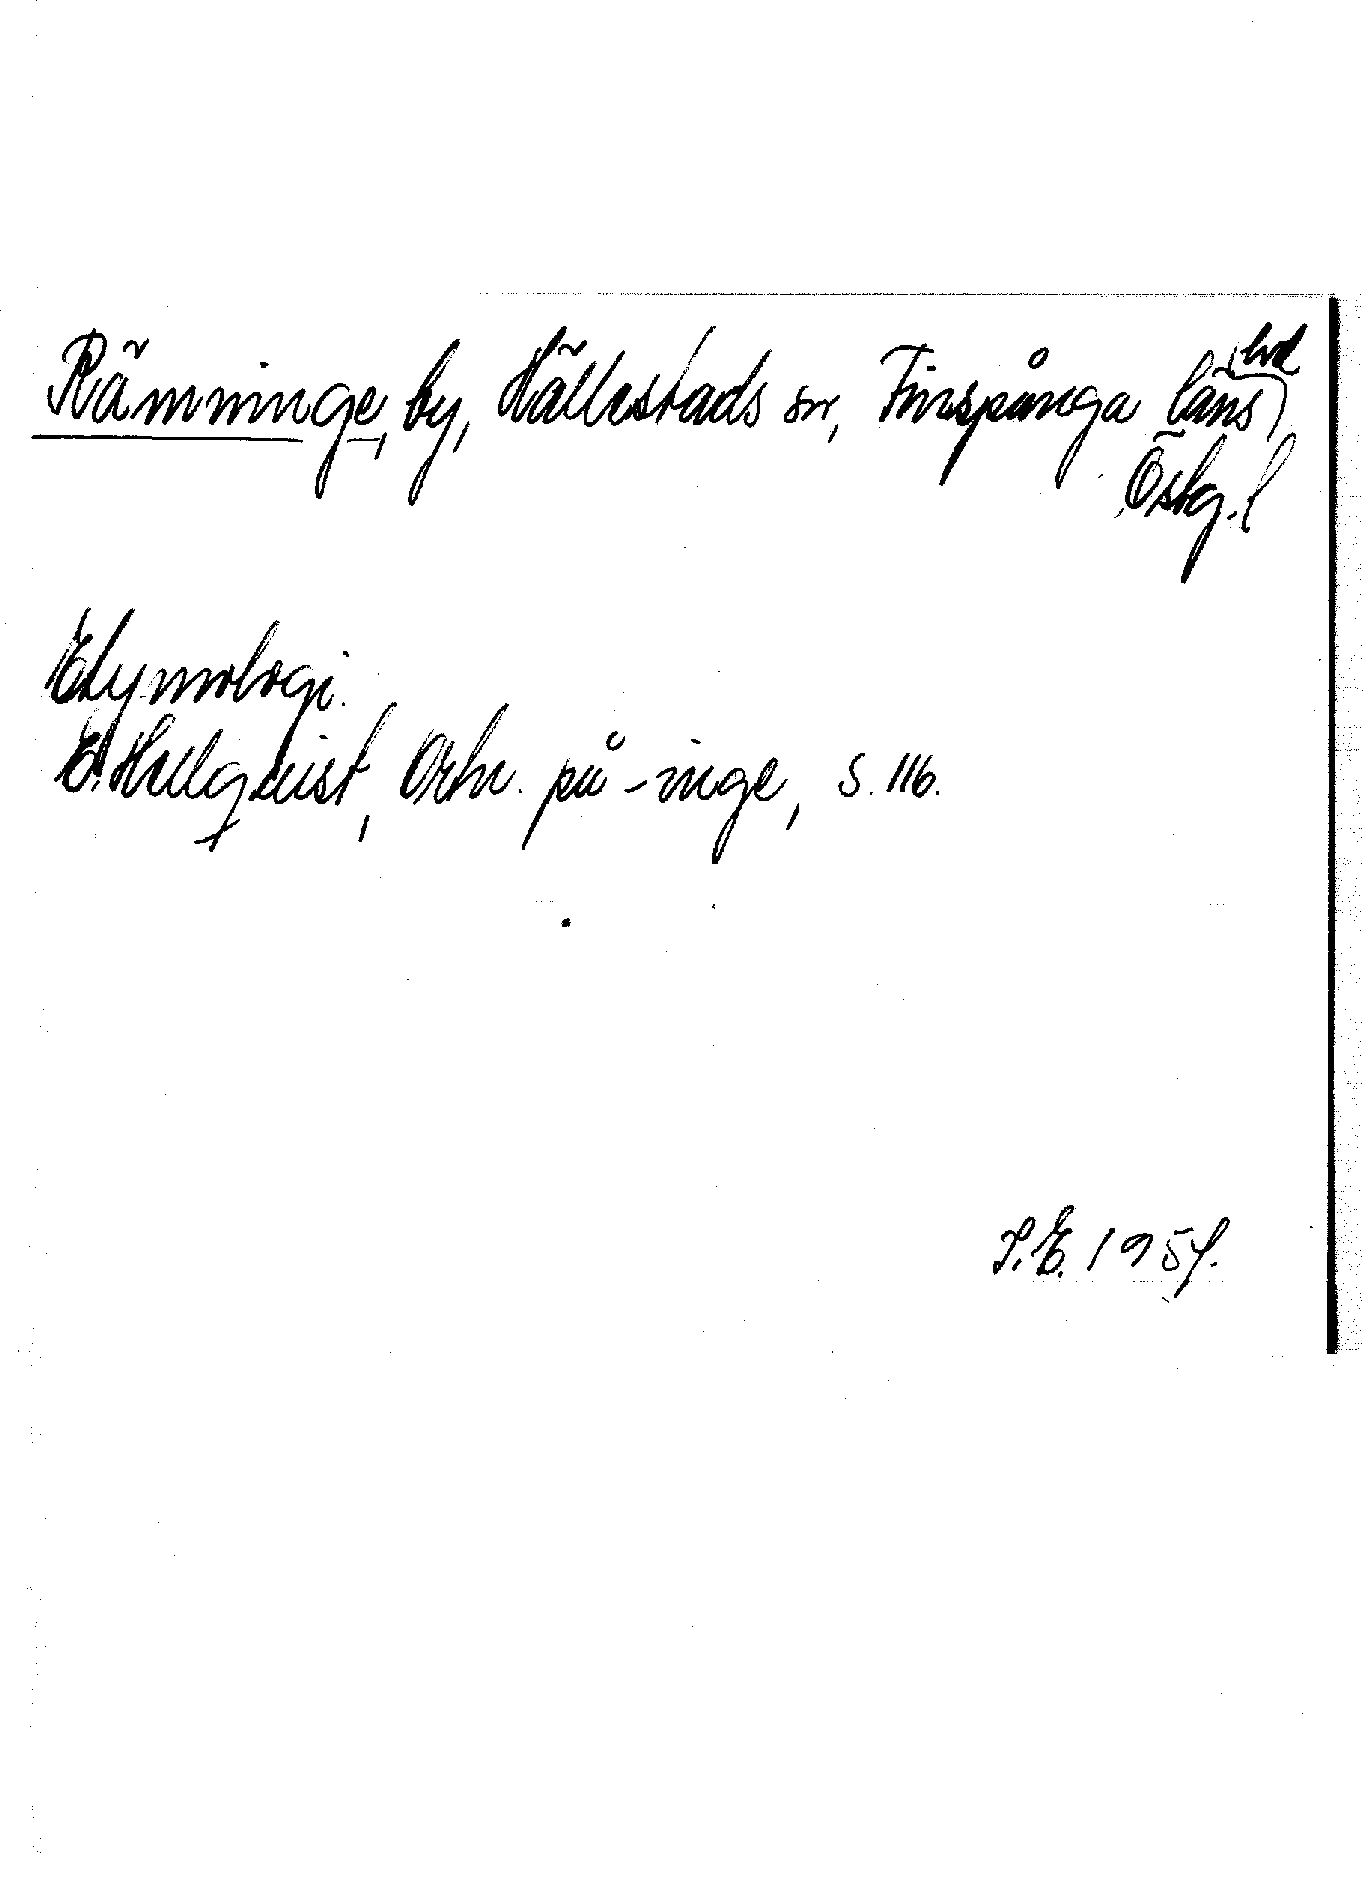 Rämninge, by, Hällestads sn, Finspånga läns hd
Östg. l
Etymologi.
E. Hellquist, Ortn. på -inge, S. 116.
S.E. 1954.